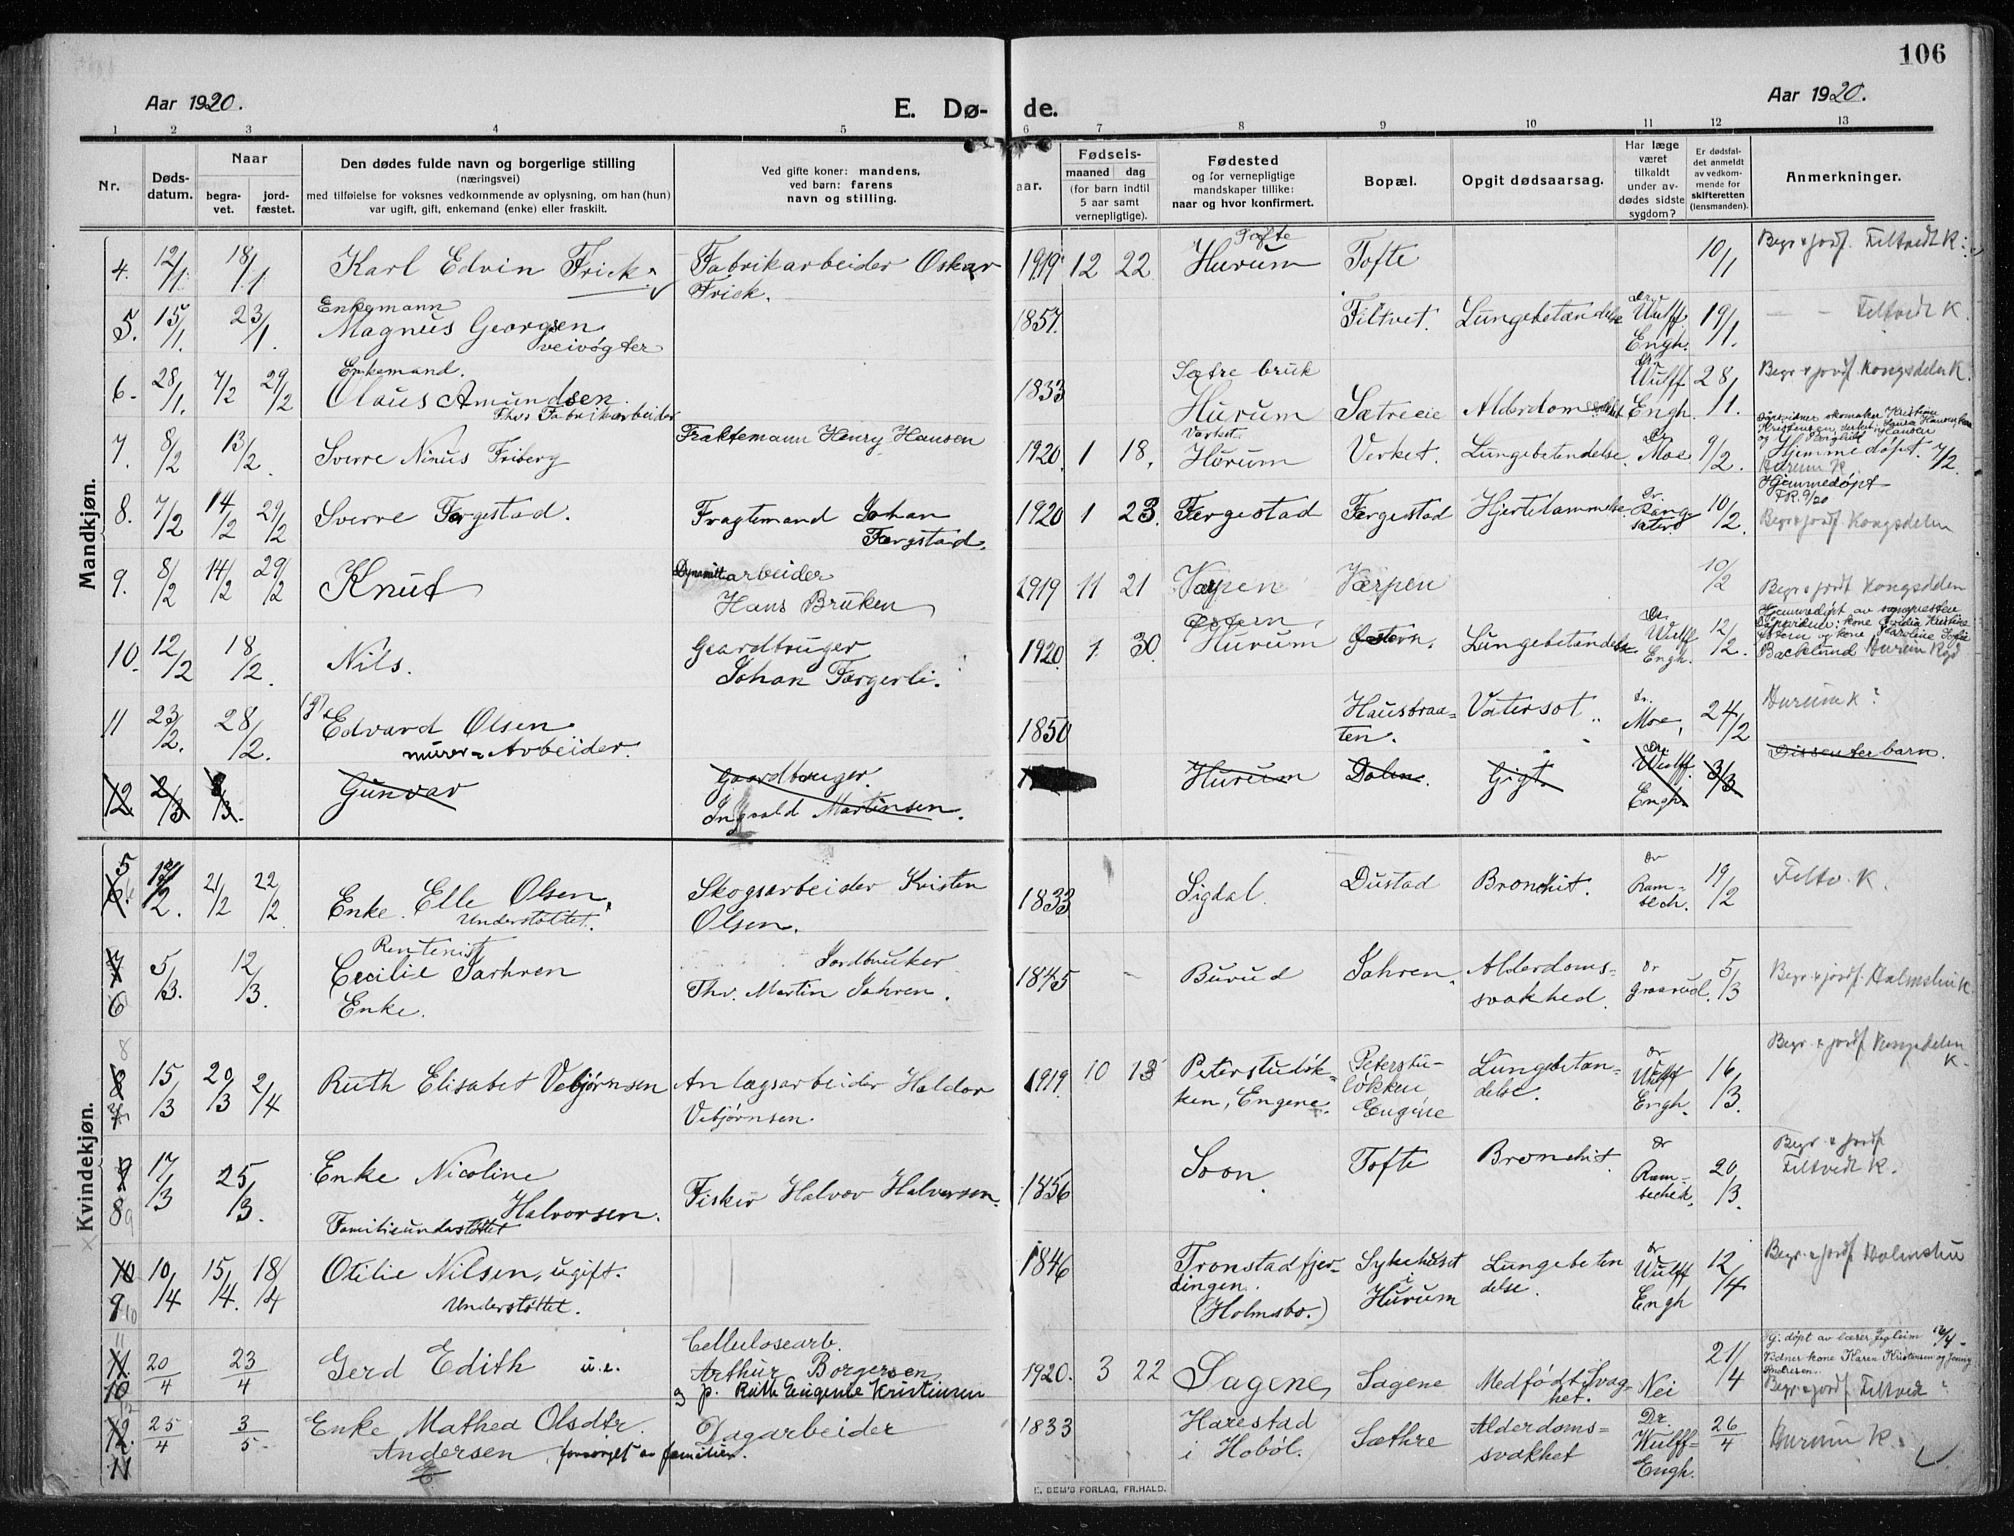 106
Aar 1920.
E. Dø-
de.
Aar 1920.
1 2 3 4 5 6 7 8 9 10 11 12 13
Nr.
Døds-
datum.
Naar
begra-
vet.
jord-
fæstet.
Den dødes fulde navn og borgerlige stilling
(næringsvei)
med tilføielse for voksnes vedkommende av oplysning, om han (hun)
var ugift, gift, enkemand (enke) eller fraskilt.
Ved gifte koner: mandens,
ved barn: farens
navn og stilling.
aar.
Fødsels-
maaned dag
(for barn indtil
5 aar samt
vernepligtige).
Fødested
og for vernepligtige
mandskaper tillike:
naar og hvor konfirmert.
Bopæl.
Opgit dødsaarsag.
Har læge
været
tilkaldt
under av-
dødes sidste
sygdom?
Er dødsfal-
det anmeldt
av vedkom-
mende for
skifteretten
(lensmanden).
Anmerkninger.
Mandkjøn.
4. 12/1. 18/1 Karl Edvin Frick. Fabrikarbeider Oskar
Frick.
1919 12 22 Tofte
Hurum Tofte 10/1 Begr & jordf. Filtvedt K.
5. 15/1. 23/1. Enkemann
Magnus Georgsen
veivogter
1857. Filtvet. Lungebetændelse Dr.
Wulff
Engh. 19/1. — — Filtvedt K.
6. 28/1. 7/2 29/2 Enkemand.
Olaus Amundsen.
Fhv. Fabrikarbeider
1833 Sætre bruk
Hurum Sætreeie Alderdom Dr
Wulff
Engh. 28/1. Begr & jordf Kongsdelen K.
7. 8/2 13/2. Sverre Ninus Friberg Fraktemann Henry Hansen
1920. 1 18. Verket.
Hurum Verket. Lungebetendelse. Dr
Moe 9/2. Hjemmedøpt. 7/2.
Hurum K
8. 7/2 14/2 29/2 Sverre Færgestad. Fragtemand Johan
Færgstad.
1920 1 23. Færgestad Færgestad Hjertelammelse. Dr. 10/2. Hjemmedøpt
FR. 9/20
Begr & jordf. Kongsdelen
9. 8/2 14/2 29/2 Knut Dynamittarbeider
Hans Bruken
1919 11 21 Værpen Værpen 10/2 Begr & jordf Kongsdelen
10. 12/2 18/2. Nils. Gaardbruger
Johan Færgerli.
1920. 1. 30. Østern,
Hurum Østern. Lungebetændelse. Dr
Wulff
Engh. 12/2. Hjemmedøpt av
Backlund Hurum Kgd
11 23/2. 28/2. (g).
Edvard Olsen
murer - Arbeider.
1850 Hausbraa-
ten. Vatersot. dr.
Moe, 24/2 Hurum K?
12 2/3 8/3. Gunvor Gaardbruger.
Ingvald Martinsen.
Hurum Dalen. Gigt. Dr.
Wulff.
Engh. 3/3 Dissenter barn.
Kvindekjøn.
5 21/2 22/2 Enke. Elle Olsen,
Understøttet. Skogsarbeider Kristen
Olsen.
1833 Sigdal. Dustad Bronchit. dr
Ram-
bech. 19/2 Filtv. K.
6 5/3. 12/3. Rentenist
Cecilie Sarhren
Enke. Jordbruker
Fhv. Martin Sahren.
1845 — Burud Sahren. Alderdoms-
svakhed. dr
Graarud. 5/3 Begr & jordf. Holmsbu K.
8 15/3 20/3 2/4 Ruth Elisabet Vebjørnsen Anlægsarbeider Haldor
Vebjørnsen.
1919. 10 13 Peterstuløk-
ken, Engene. Peterstu-
løkken
Engene Lungebetæn-
delse. dr
Wulff
Engh. 16/3. Begr & jordf Kongsdelen
K.
9 17/3 25/3. Enke Nicoline
Halvorsen.
Familieunderstøttet Fisker Halvor Halvorsen.
8
1856 Soon. Tofte Bronchit. Dr
Ram-
bech. 20/3. Begr & jordf
Filtvedt K.
10 10/4 15/4. 18/4 Otilie Nilsen, ugift.
Understøttet.
9
1846 Tronstadfjer-
dingen.
(Holmsbo.) Sykehuset
i
Hurum Lungebeten
delse. dr
Wulff
Engh 12/4 Begr. & jordf Holmsbu
11. 20/4 23/4 Gerd Edith u.e. Cellulosearb.
Arthur Borgersen,
og p. Ruth Eugenie Kristinsen
10
1920. 3 22 Sagene, Sagene Medfødt Svag-
het. Nei 21/4 Hj. døpt av lærer 12/4-
Vidner kone Karen Kristensen og Jenny
Andresen.
Begr & jordf Filtvedt
12. 25/4 3/5 Enke Mathea Olsdtr.
Andersen, forsørget av familien. Dagarbeider
11
1833 Harestad
i Hobøl. Sæthre Alderdoms-
svakhet Dr.
Wulff-
Engh. 26/4 Hurum K.
E. SEM'S FORLAG, FR.HALD.